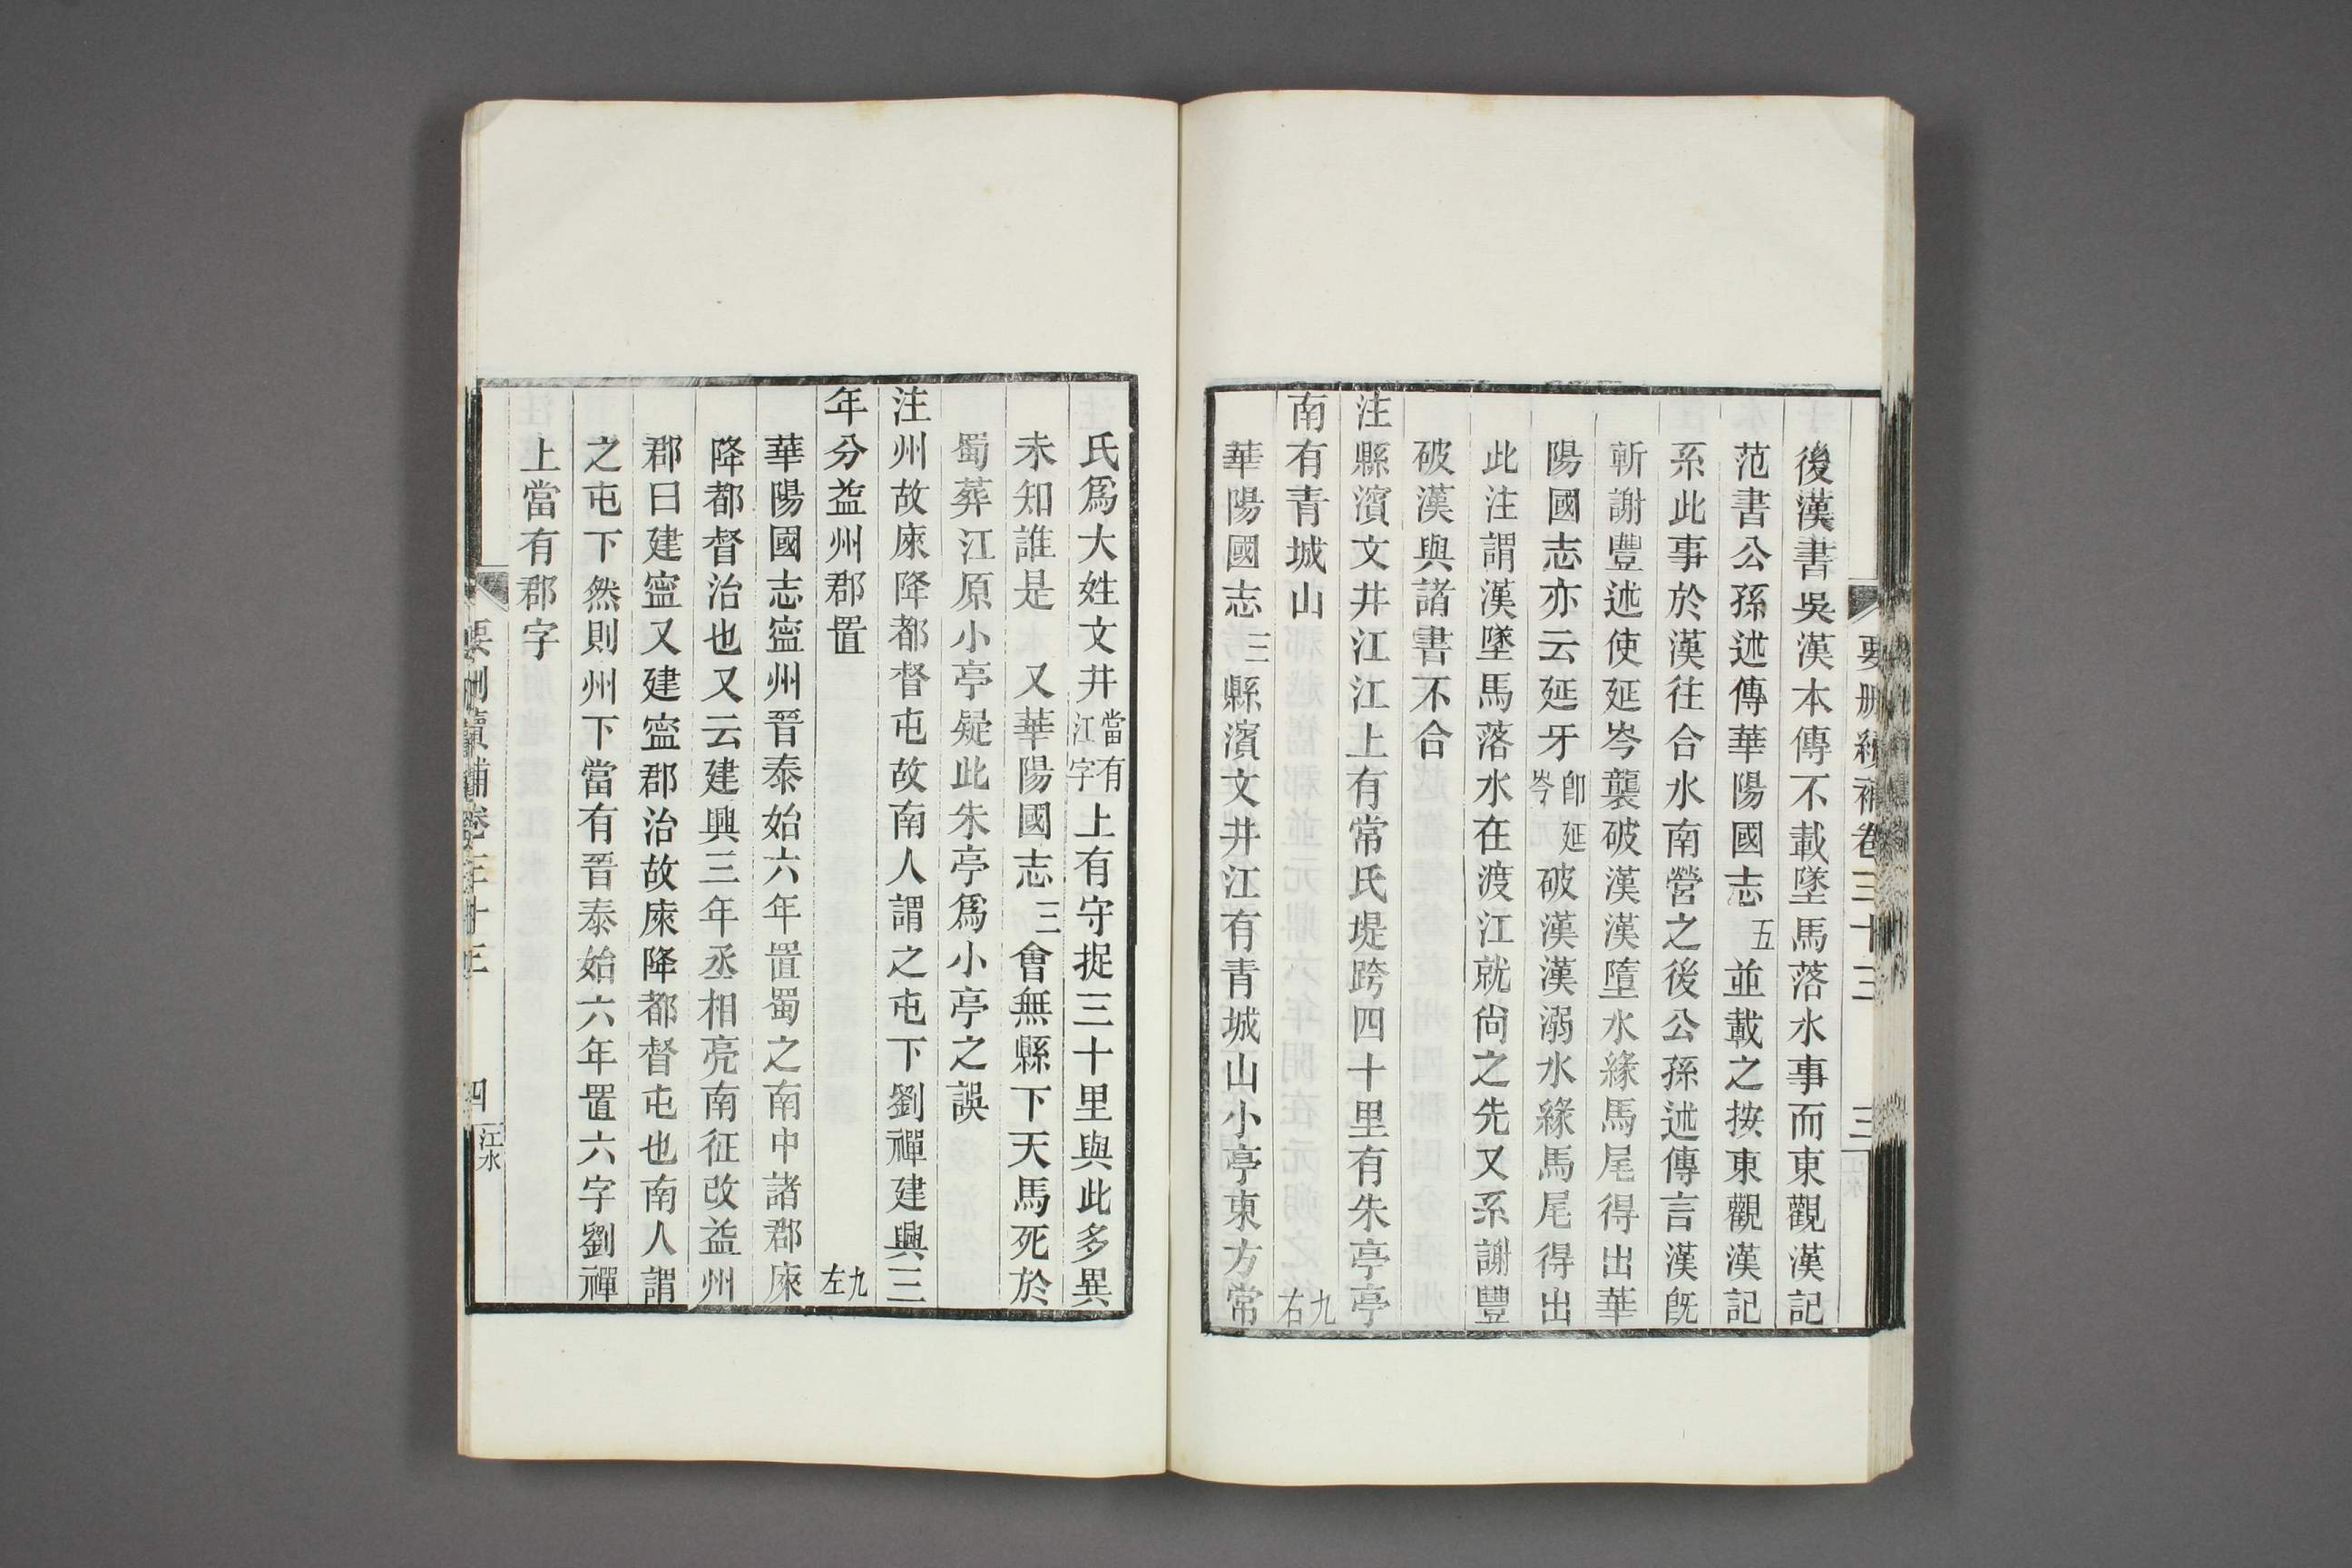 要刪續補卷三十三 三
後漢書吳漢本傳不載墜馬落水事而東觀漢記
范書公孫述傳華陽國志五並載之按東觀漢記
系此事於漢往合水南營之後公孫述傳言漢旣
斬謝豐述使延岑襲破漢漢墮水緣馬尾得出華
陽國志亦云延牙卽延岑破漢漢溺水緣馬尾得出
此注謂漢墜馬落水在渡江就尙之先又系謝豐
破漢與諸書不合
注縣濱文井江江上有常氏堤跨四十里有朱亭亭
南有青城山 九右
華陽國志三縣濱文井江有青城山小亭東方常
氏爲大姓文井當有江字上有守捉三十里與此多異
未知誰是 又華陽國志三會無縣下天馬死於
蜀葬江原小亭疑此朱亭爲小亭之誤
注州故庲降都督屯故南人謂之屯下劉禪建興三
年分益州郡置 九左
華陽國志寍州晉泰始六年置蜀之南中諸郡庲
降都督治也又云建興三年丞相亮南征改益州
郡曰建寍又建寍郡治故庲降都督屯也南人謂
之屯下然則州下當有晉泰始六年置六字劉禪
上當有郡字
要刪續補卷三十三 四 江水